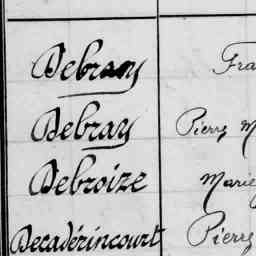 Debray Fra
Debray Pierre M
Debroize Marie
Decadérincourt Pierre